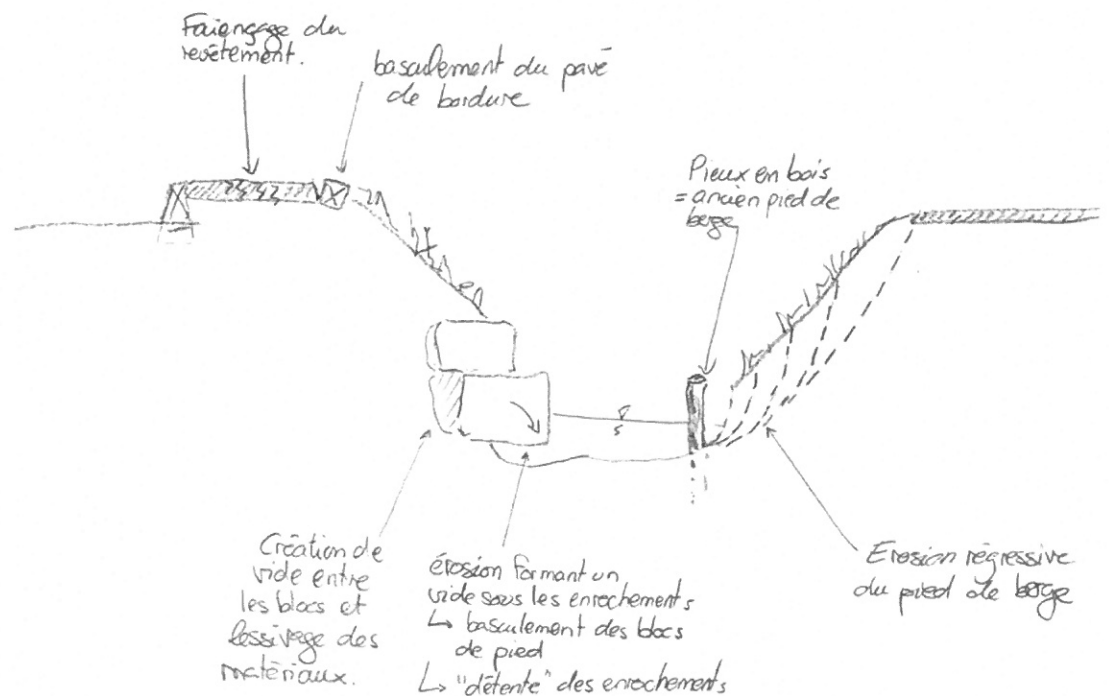 Faïençage du
revêtement.
basculement du pavé
de bordure
Pieux en bois
= ancien pied de
berge
s
Création de
vide entre
les blocs et
lessivage des
matériaux.
érosion formant un
vide sous les enrochements
↳ basculement des blocs
de pied
↳ "détente" des enrochements
Erosion régressive
du pied de berge